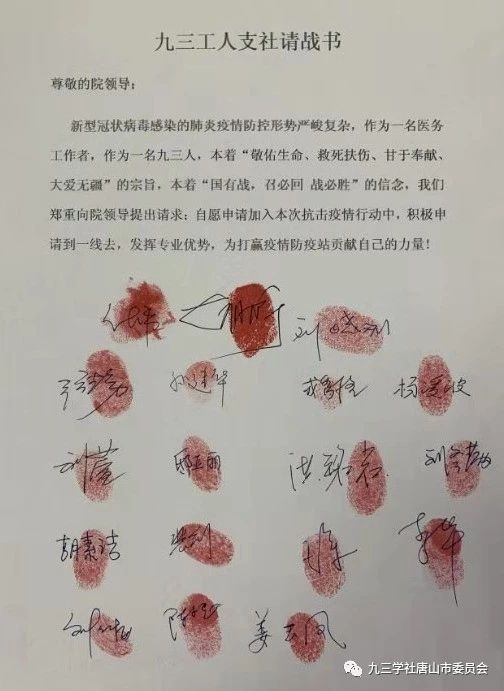 九三工人支社请战书
尊敬的院领导：
新型冠状病毒感染的肺炎疫情防控形势严峻复杂，作为一名医务
工作者，作为一名九三人，本着“敬佑生命、救死扶伤、甘于奉献、
大爱无疆”的宗旨，本着“国有战，召必回 战必胜”的信念，我们
郑重向院领导提出请求：自愿申请加入本次抗击疫情行动中，积极申
请到一线去，发挥专业优势，为打赢疫情防疫站贡献自己的力量！
孙建华
杨爱波
刘萱
邸玉丽
胡素洁
李华
九三学社唐山市委员会